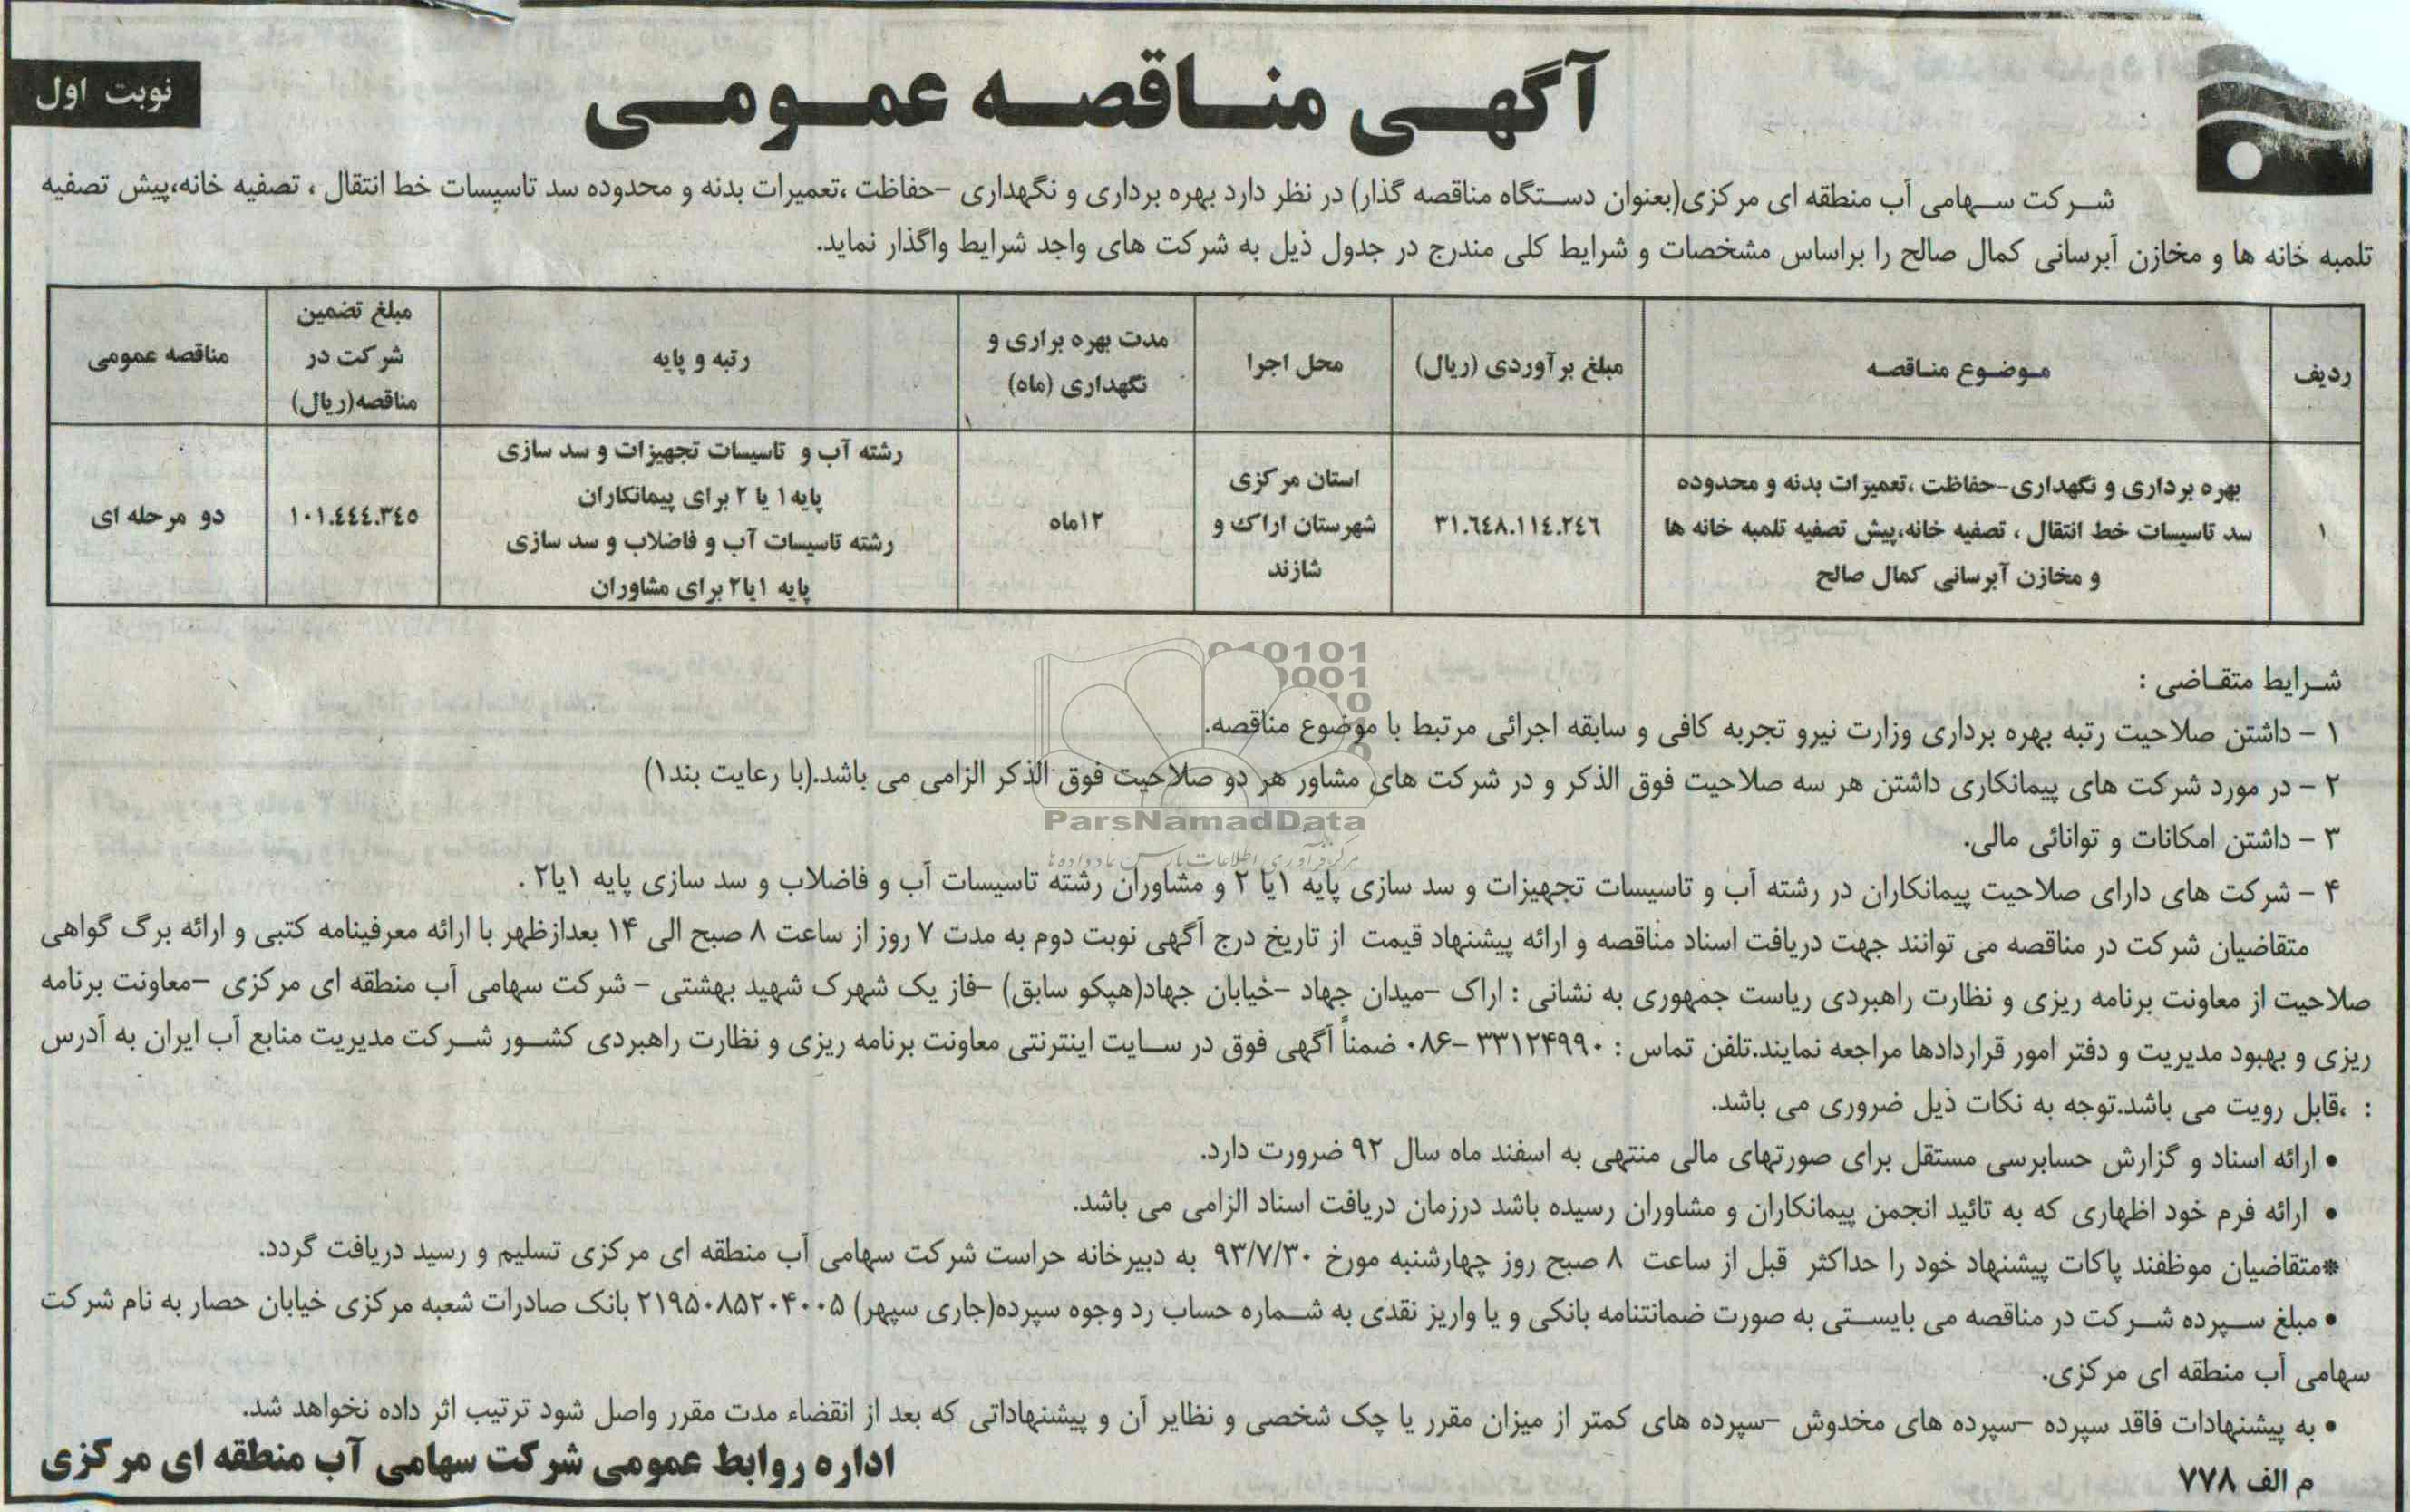 آگهی مناقصه عمومی
نوبت اول
شرکت سهامی آب منطقه ای مرکزی(بعنوان دستگاه مناقصه گذار) در نظر دارد بهره برداری و نگهداری -حفاظت ،تعمیرات بدنه و محدوده سد تاسیسات خط انتقال ، تصفیه خانه،پیش تصفیه
تلمبه خانه ها و مخازن آبرسانی کمال صالح را براساس مشخصات و شرایط کلی مندرج در جدول ذیل به شرکت های واجد شرایط واگذار نماید.
ردیف
موضوع مناقصه
مبلغ برآوردی (ریال)
محل اجرا
مدت بهره براری و
نگهداری (ماه)
رتبه و پایه
مبلغ تضمین
شرکت در
مناقصه(ریال)
مناقصه عمومی
۱
بهره برداری و نگهداری-حفاظت ،تعمیرات بدنه و محدوده
سد تاسیسات خط انتقال ، تصفیه خانه،پیش تصفیه تلمبه خانه ها
و مخازن آبرسانی کمال صالح
۳۱.٦٤۸.۱۱٤.۲٤٦
استان مرکزی
شهرستان اراک و
شازند
۱۲ماه
رشته آب و تاسیسات تجهیزات و سد سازی
پایه۱ یا ۲ برای پیمانکاران
رشته تاسیسات آب و فاضلاب و سد سازی
پایه ۱یا۲ برای مشاوران
۱۰۱.٤٤٤.۳٤٥
دو مرحله ای
شرایط متقاضی :
۱ - داشتن صلاحیت رتبه بهره برداری وزارت نیرو تجربه کافی و سابقه اجرائی مرتبط با موضوع مناقصه.
۲ - در مورد شرکت های پیمانکاری داشتن هر سه صلاحیت فوق الذکر و در شرکت های مشاور هر دو صلاحیت فوق الذکر الزامی می باشد.(با رعایت بند۱)
۳ - داشتن امکانات و توانائی مالی.
۴ - شرکت های دارای صلاحیت پیمانکاران در رشته آب و تاسیسات تجهیزات و سد سازی پایه ۱یا ۲ و مشاوران رشته تاسیسات آب و فاضلاب و سد سازی پایه ۱یا۲ .
متقاضیان شرکت در مناقصه می توانند جهت دریافت اسناد مناقصه و ارائه پیشنهاد قیمت از تاریخ درج آگهی نوبت دوم به مدت ۷ روز از ساعت ۸ صبح الی ۱۴ بعدازظهر با ارائه معرفینامه کتبی و ارائه برگ گواهی
صلاحیت از معاونت برنامه ریزی و نظارت راهبردی ریاست جمهوری به نشانی : اراک -میدان جهاد -خیابان جهاد(هپکو سابق) -فاز یک شهرک شهید بهشتی - شرکت سهامی آب منطقه ای مرکزی -معاونت برنامه
ریزی و بهبود مدیریت و دفتر امور قراردادها مراجعه نمایند.تلفن تماس : ۳۳۱۲۴۹۹۰ -۰۸۶ ضمناً آگهی فوق در سایت اینترنتی معاونت برنامه ریزی و نظارت راهبردی کشور شرکت مدیریت منابع آب ایران به آدرس
: ،قابل رویت می باشد.توجه به نکات ذیل ضروری می باشد.
• ارائه اسناد و گزارش حسابرسی مستقل برای صورتهای مالی منتهی به اسفند ماه سال ۹۲ ضرورت دارد.
• ارائه فرم خود اظهاری که به تائید انجمن پیمانکاران و مشاوران رسیده باشد درزمان دریافت اسناد الزامی می باشد.
*متقاضیان موظفند پاکات پیشنهاد خود را حداکثر قبل از ساعت ۸ صبح روز چهارشنبه مورخ ۹۳/۷/۳۰ به دبیرخانه حراست شرکت سهامی آب منطقه ای مرکزی تسلیم و رسید دریافت گردد.
• مبلغ سپرده شرکت در مناقصه می بایستی به صورت ضمانتنامه بانکی و یا واریز نقدی به شماره حساب رد وجوه سپرده(جاری سپهر) ۲۱۹۵۰۸۵۲۰۴۰۰۵ بانک صادرات شعبه مرکزی خیابان حصار به نام شرکت
سهامی آب منطقه ای مرکزی.
• به پیشنهادات فاقد سپرده -سپرده های مخدوش -سپرده های کمتر از میزان مقرر یا چک شخصی و نظایر آن و پیشنهاداتی که بعد از انقضاء مدت مقرر واصل شود ترتیب اثر داده نخواهد شد.
م الف ۷۷۸
اداره روابط عمومی شرکت سهامی آب منطقه ای مرکزی
ParsNamadData
مرکز فرآوری اطلاعات پارس نماد داده ها